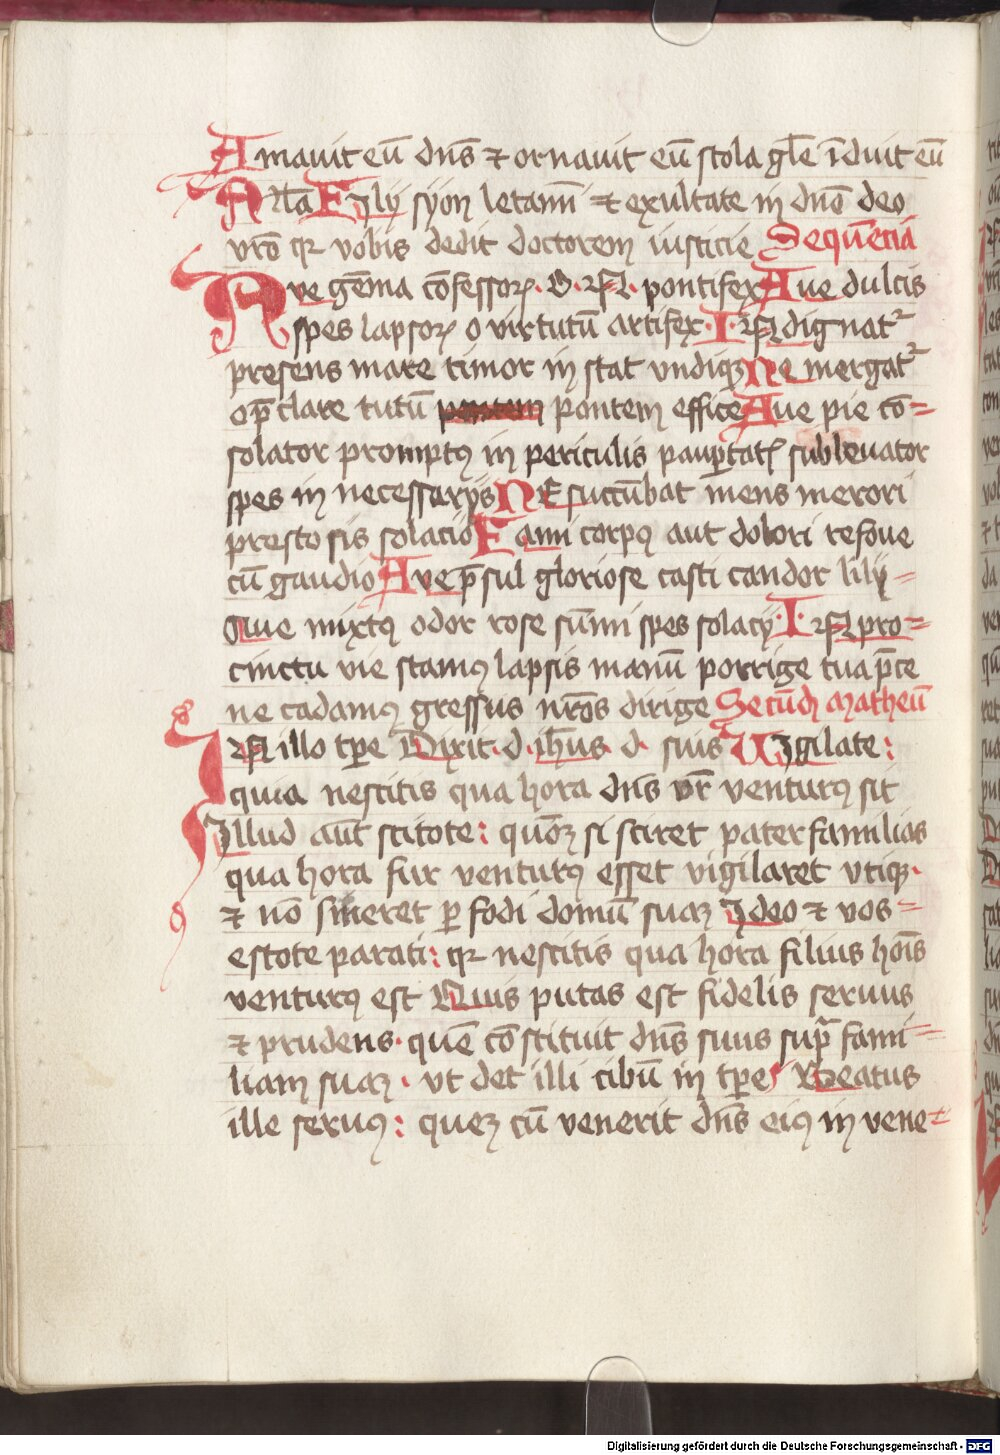 Amauit eū dn̄s ⁊ ornauit eū stola gl̄e īduit eū
All̄a Filij syon letamī ⁊ exultate in dn̄o deo
vr̄o qꝛ vobis dedit doctorem iusticie Sequēcia
Aue gēma cōfessorꝝ · O · N · pontifex Aue dulcis
spes lapsorꝝ o virtutū artifex · I · N dignatᷣ
presens mare timor in stat vndiqꝫ Ne mergatᷣ
o p̄clare tutū pontem effice Aue pie cō=
solator promptꝰ in periculis paup̄tatꝭ subleuator
spes in necessarijs Ne succūbat mens merori
presto sis solacio Fami corpꝰ aut dolori refoue
cū gaudio Aue p̄sul gloriose casti candor lilij=
Que mixtꝰ odor rose sūmi spes solacij · I · N pro=
cinctu vie stamꝰ lapsis manū porrige tua p̄ce
ne cadamꝰ gressus nr̄os dirige Secūdꝫ Matheū
IN illo tp̄e Dixit · d · ih̄us · d · suis Vigilate:
quia nescitis qua hora dn̄s vr̄ venturꝰ sit
Illud aūt scitote: quōꝫ si sciret paterfamilias
qua hora fur venturꝰ esset vigilaret vtiqꝫ ·
⁊ nō sineret ꝑfodi domū suaꝫ Ideo ⁊ vos=
estote parati: qꝛ nescitis qua hora filius hoīs
venturꝰ est Quis putas est fidelis seruus
⁊ prudens · quē cōstituit dn̄s suus supᷓ fami=
liam suaꝫ · vt det illi cibū in tp̄e Beatus
ille seruꝰ: queꝫ cū venerit dn̄s eiꝰ in vene=
Digitalisierung gefördert durch die Deutsche Forschungsgemeinschaft - DFG